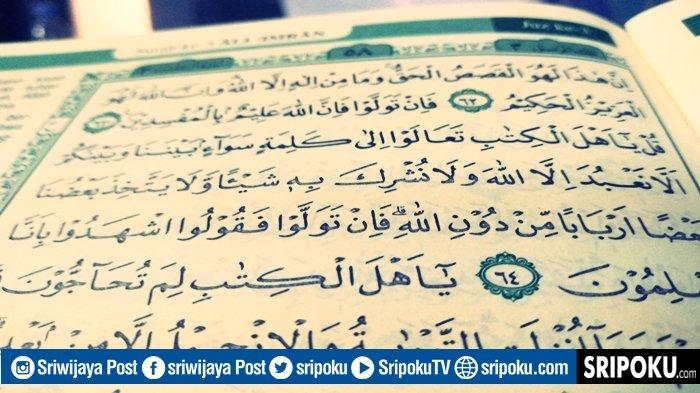 ALI 'IMRAN
٥٨
اِنَّ هٰذَا لَهُوَ الْقَصَصُ الْحَقُّ وَمَا مِنْ اِلٰهٍ اِلَّا اللّٰهُ وَاِنَّ اللّٰهَ لَهُوَ
الْعَزِيْزُ الْحَكِيْمُ ٦٢ فَاِنْ تَوَلَّوْا فَاِنَّ اللّٰهَ عَلِيْمٌ بِالْمُفْسِدِيْنَ
قُلْ يٰٓاَهْلَ الْكِتٰبِ تَعَالَوْا اِلٰى كَلِمَةٍ سَوَاۤءٍ بَيْنَنَا وَبَيْنَكُمْ
اَلَّا نَعْبُدَ اِلَّا اللّٰهَ وَلَا نُشْرِكَ بِهٖ شَيْـًٔا وَّلَا يَتَّخِذَ بَعْضُنَا
بَعْضًا اَرْبَابًا مِّنْ دُوْنِ اللّٰهِ ۗ فَاِنْ تَوَلَّوْا فَقُوْلُوا اشْهَدُوْا بِاَنَّا
مُسْلِمُوْنَ ٦٤ يٰٓاَهْلَ الْكِتٰبِ لِمَ تُحَاۤجُّوْنَ
Sriwijaya Post sriwijaya Post sripoku SripokuTV sripoku.com
SRIPOKU.com